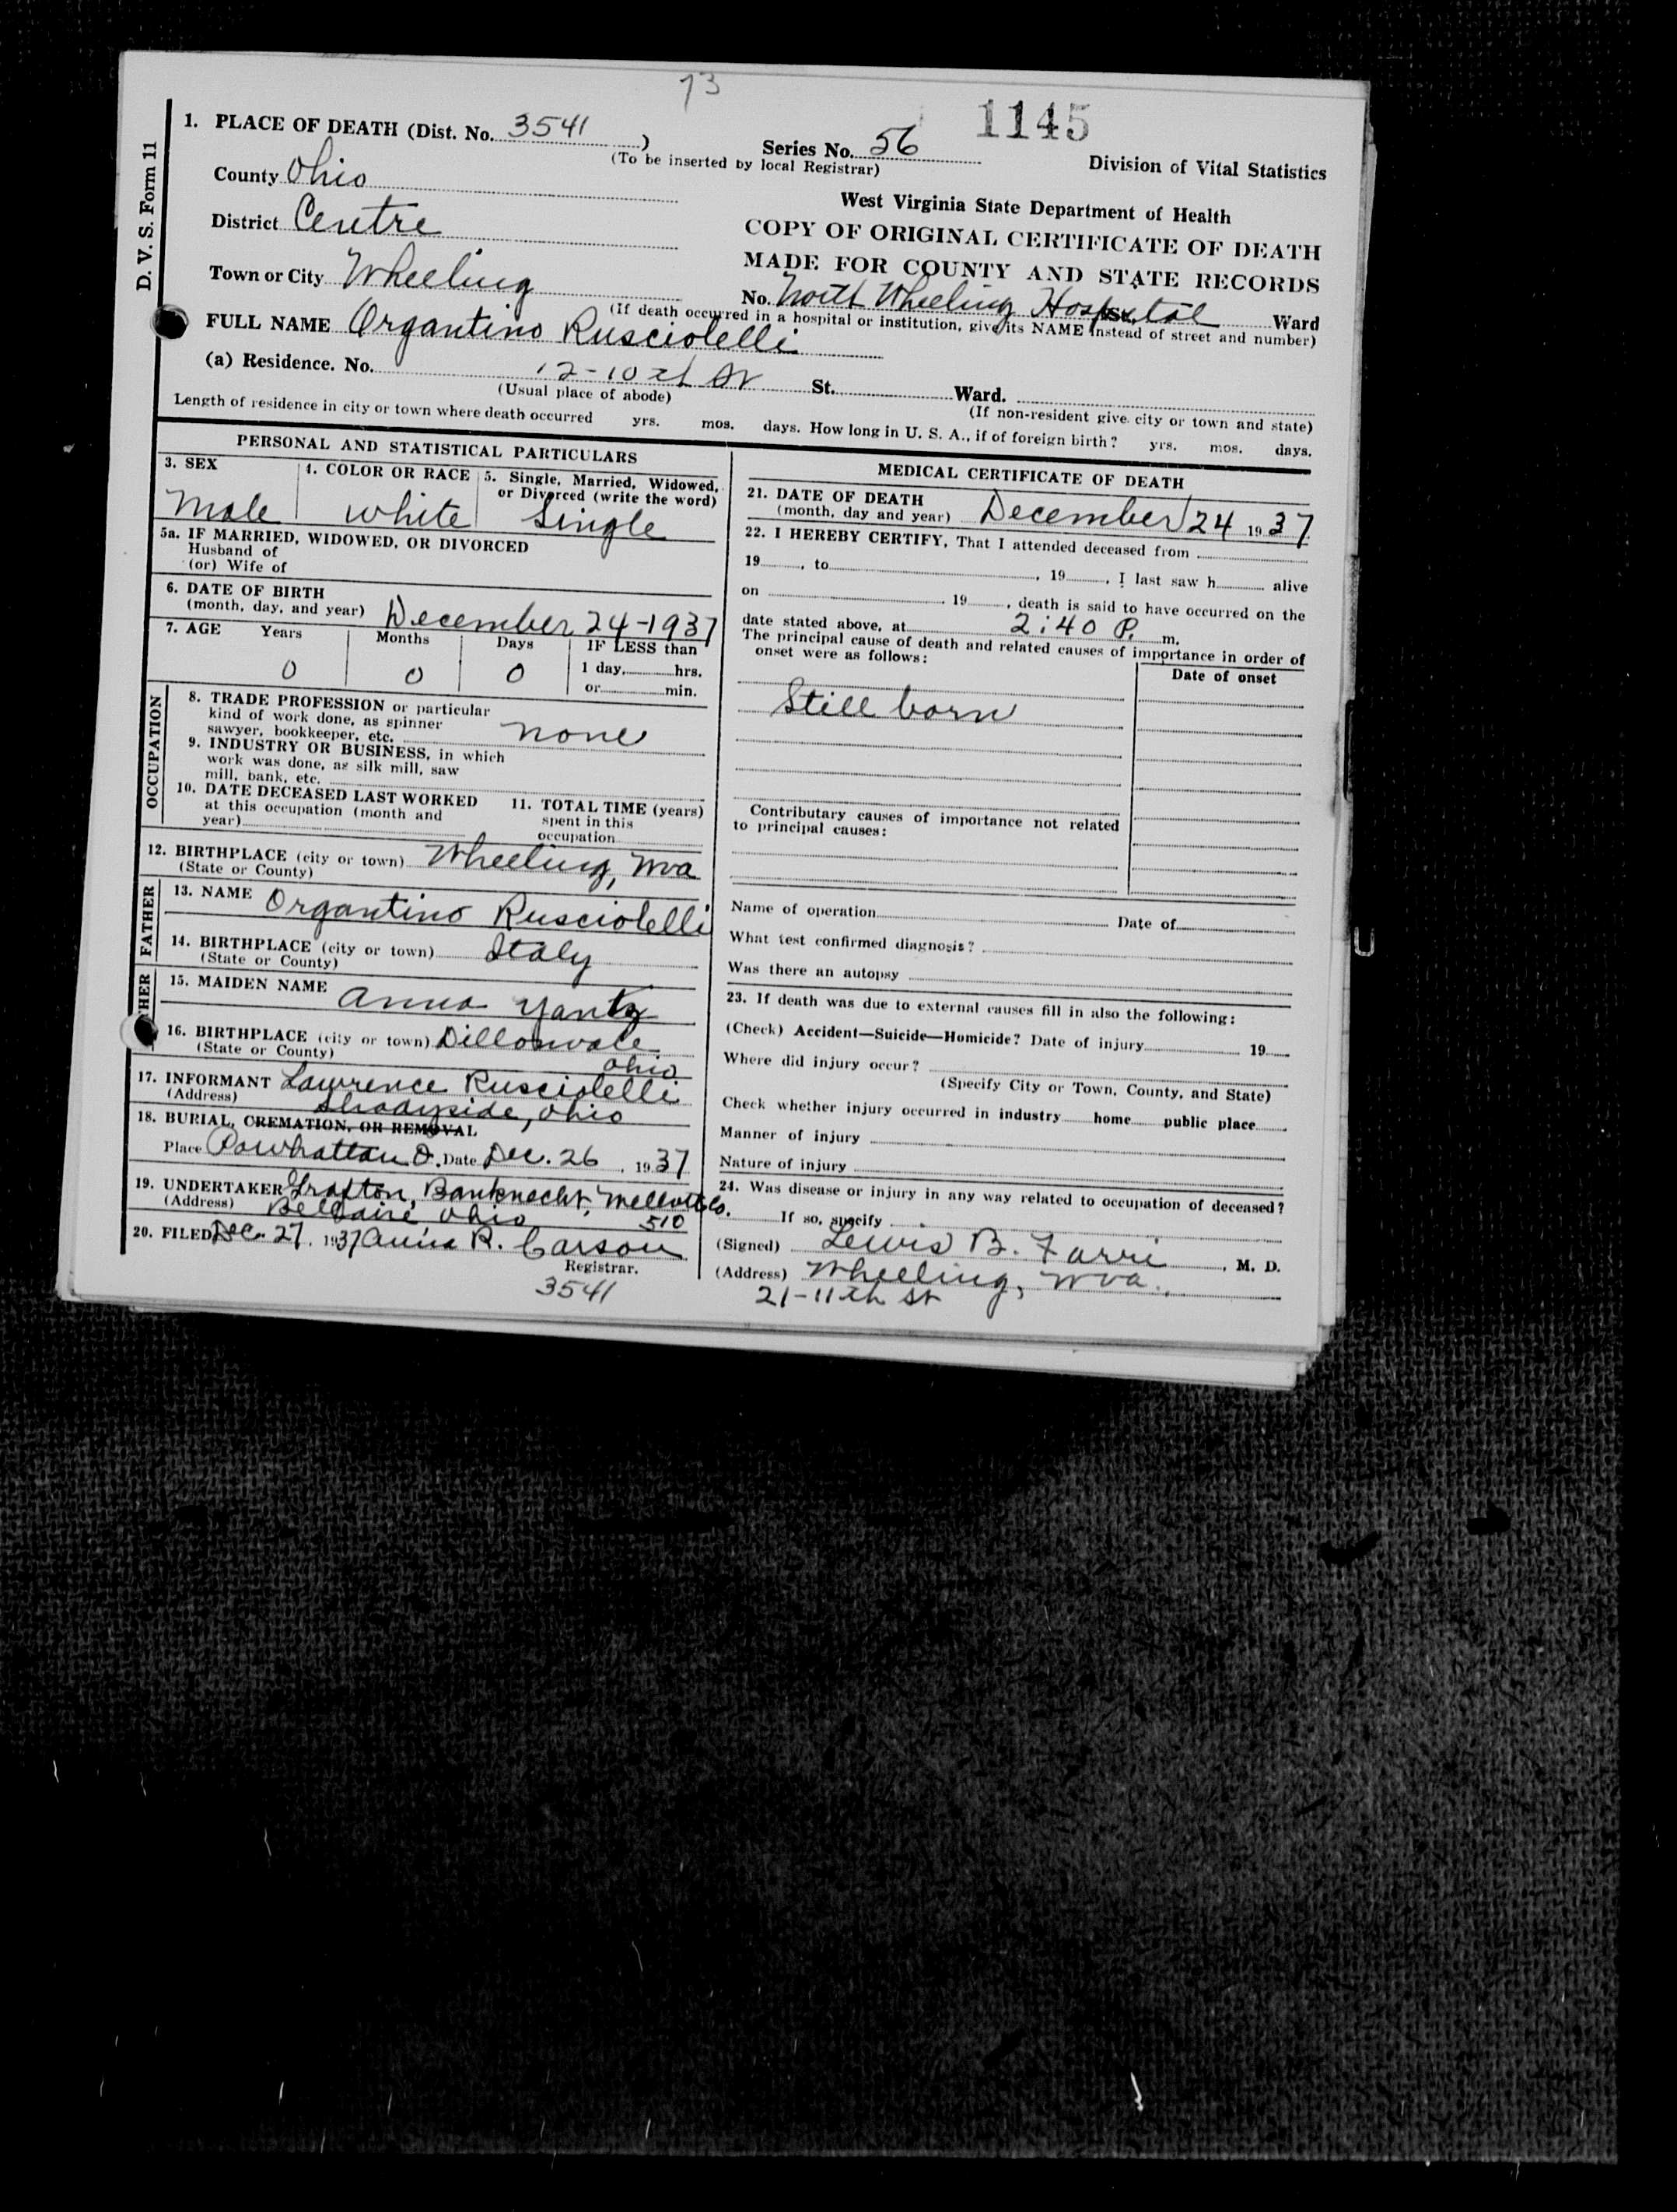 73
1145
D. V. S. Form 11
1. PLACE OF DEATH (Dist. No. 3541 )
Series No. 56
(To be inserted by local Registrar)
Division of Vital Statistics
County Ohio
West Virginia State Department of Health
District Centre
COPY OF ORIGINAL CERTIFICATE OF DEATH
MADE FOR COUNTY AND STATE RECORDS
Town or City Wheeling
No. North Wheeling Hospital St. Ward
(If death occurred in a hospital or institution, give its NAME instead of street and number)
FULL NAME Organtino Rusciolelli
(a) Residence. No. 12-10th St St. Ward.
(Usual place of abode)
(If non-resident give city or town and state)
Length of residence in city or town where death occurred yrs. mos. days. How long in U. S. A., if of foreign birth? yrs. mos. days.
PERSONAL AND STATISTICAL PARTICULARS
3. SEX
Male
4. COLOR OR RACE
white
5. Single, Married, Widowed,
or Divorced (write the word)
Single
5a. IF MARRIED, WIDOWED, OR DIVORCED
Husband of
(or) Wife of
6. DATE OF BIRTH
(month, day, and year) December 24-1937
7. AGE Years Months Days IF LESS than
0 0 0 1 day, hrs.
or min.
OCCUPATION
8. TRADE PROFESSION or particular
kind of work done, as spinner
sawyer, bookkeeper, etc. none
9. INDUSTRY OR BUSINESS, in which
work was done, as silk mill, saw
mill, bank, etc.
10. DATE DECEASED LAST WORKED
at this occupation (month and
year)
11. TOTAL TIME (years)
spent in this
occupation
12. BIRTHPLACE (city or town) Wheeling, Wva
(State or County)
FATHER
13. NAME Organtino Rusciolelli
14. BIRTHPLACE (city or town) Italy
(State or County)
HER
15. MAIDEN NAME Anna Yantz
16. BIRTHPLACE (city or town) Dillonvale
(State or County) Ohio
17. INFORMANT Lawrence Rusciolelli
(Address) Shadyside, Ohio
18. BURIAL, CREMATION, OR REMOVAL
Place Powhattan O. Date Dec. 26, 1937
19. UNDERTAKER Grafton, Banknecht, Mellott Co.
(Address) Bellaire, Ohio 510
20. FILED Dec. 27, 1937 Anna R. Carson
Registrar.
3541
MEDICAL CERTIFICATE OF DEATH
21. DATE OF DEATH
(month, day and year) December 24 1937
22. I HEREBY CERTIFY, That I attended deceased from
19 , to , 19 , I last saw h alive
on 19 , death is said to have occurred on the
date stated above, at 2:40 P. m.
The principal cause of death and related causes of importance in order of
onset were as follows:
Date of onset
Still born
Contributory causes of importance not related
to principal causes:
Name of operation Date of
What test confirmed diagnosis?
Was there an autopsy
23. If death was due to external causes fill in also the following:
(Check) Accident—Suicide—Homicide? Date of injury 19
Where did injury occur?
(Specify City or Town, County, and State)
Check whether injury occurred in industry home public place
Manner of injury
Nature of injury
24. Was disease or injury in any way related to occupation of deceased?
If so, specify
(Signed) Lewis B. Farri , M. D.
(Address) Wheeling, Wva.
21-11th St